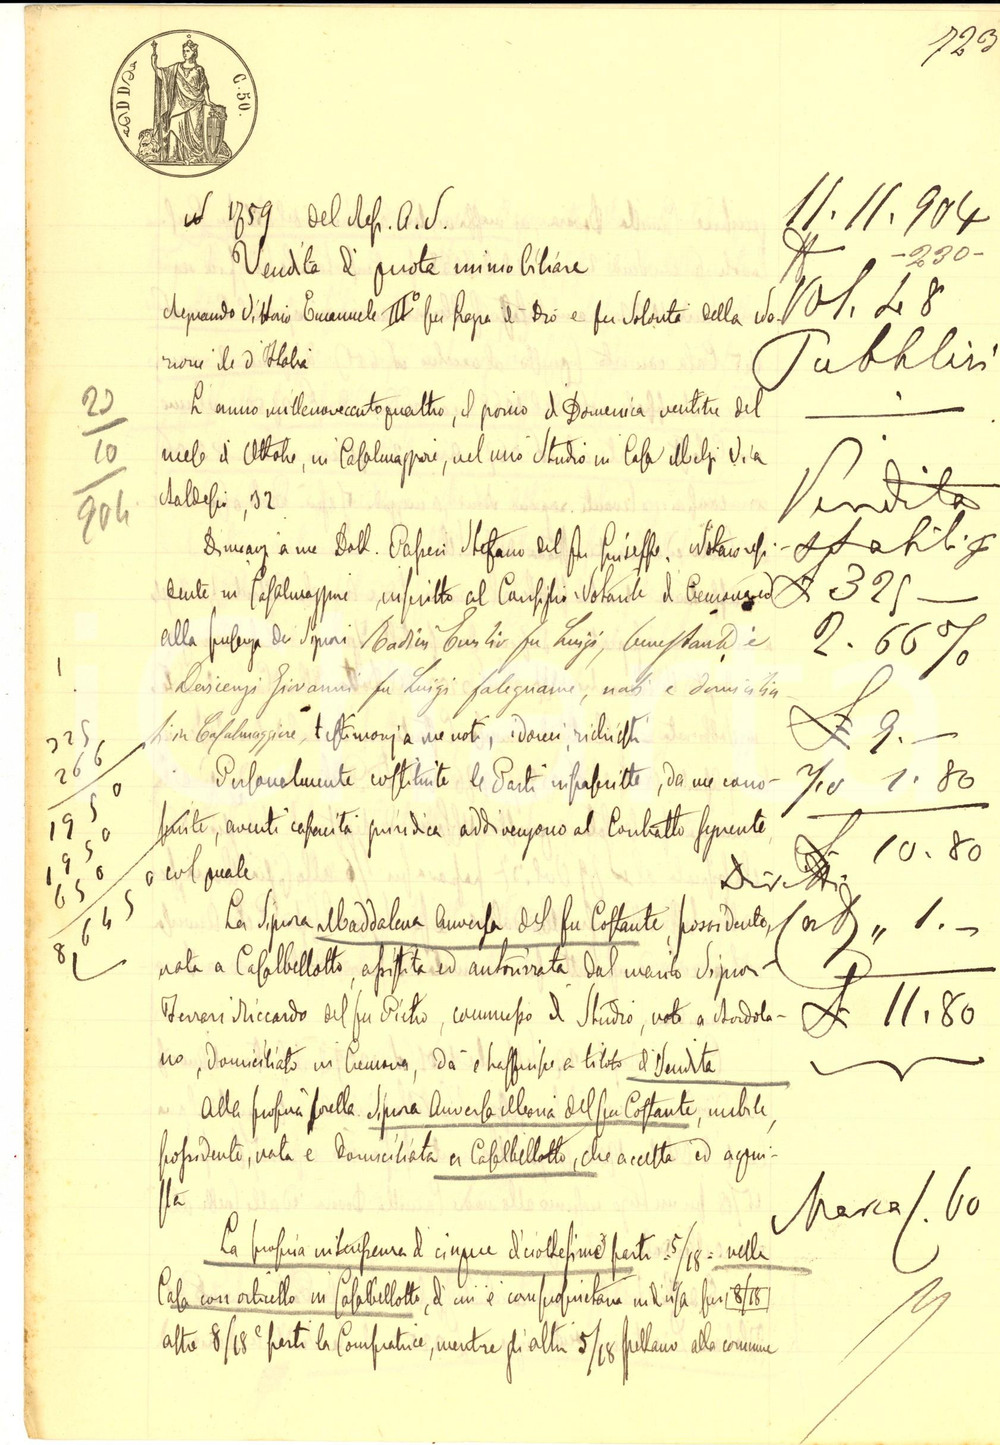 723
C. 50.
N 1759 del Rep. A. V.
Vendita di quota immobiliare
Regnando Vittorio Emanuele III° per Grazia di Dio e per Volontà della Na-
zione Re d'Italia
L'anno millenovecentoquattro, il giorno di Domenica ventitre del
mese di Ottobre, in Casalmaggiore, nel mio Studio in Casa Melzi Via
Baldesio, 32
Dinanzi a me Dott. Stefano del fu Giuseppe, Notaro resi-
dente in Casalmaggiore inscritto al Consiglio Notarile di Cremona ed
alla presenza dei Signori fu Luigi, benestante e
Giovanni fu Luigi falegname, nati e domicilia-
ti in Casalmaggiore, testimonj a me noti, idonei, richiesti
Personalmente costituite le Parti infrascritte, da me cono-
sciute, aventi capacità giuridica addivengono al Contratto seguente,
col quale
La Signora Maddalena Anversa del fu Costante, possidente,
nata a Casalbellotto, assistita ed autorizzata dal marito Signor
Ferrari Riccardo del fu Pietro, commesso di Studio, nato a Bordola-
no, domiciliato in Cremona, dà e trasferisce a titolo di Vendita
Alla propria sorella Signora Anversa Maria del fu Costante, nubile,
possidente, nata e domiciliata a Casalbellotto, che accetta ed acqui-
sta
La propria interessenza di cinque diciottesime parti = 5/18 = nella
Casa con orticello in Casalbellotto, di cui è comproprietaria indivisa per 8/18
altre 8/18e parti la Compratrice, mentre gli altri 5/18 spettano alla comune
11. 11. 904
- 230 -
Vol. 48
Pubblici
Vendita
stabili
£ 325 —
2. 66 %
£ 9. —
1. 80
£ 10. 80
Diritti
" 1. —
£ 11. 80
Marca £. 60
23
10
904
325
266
1950
1950
650
8,6450